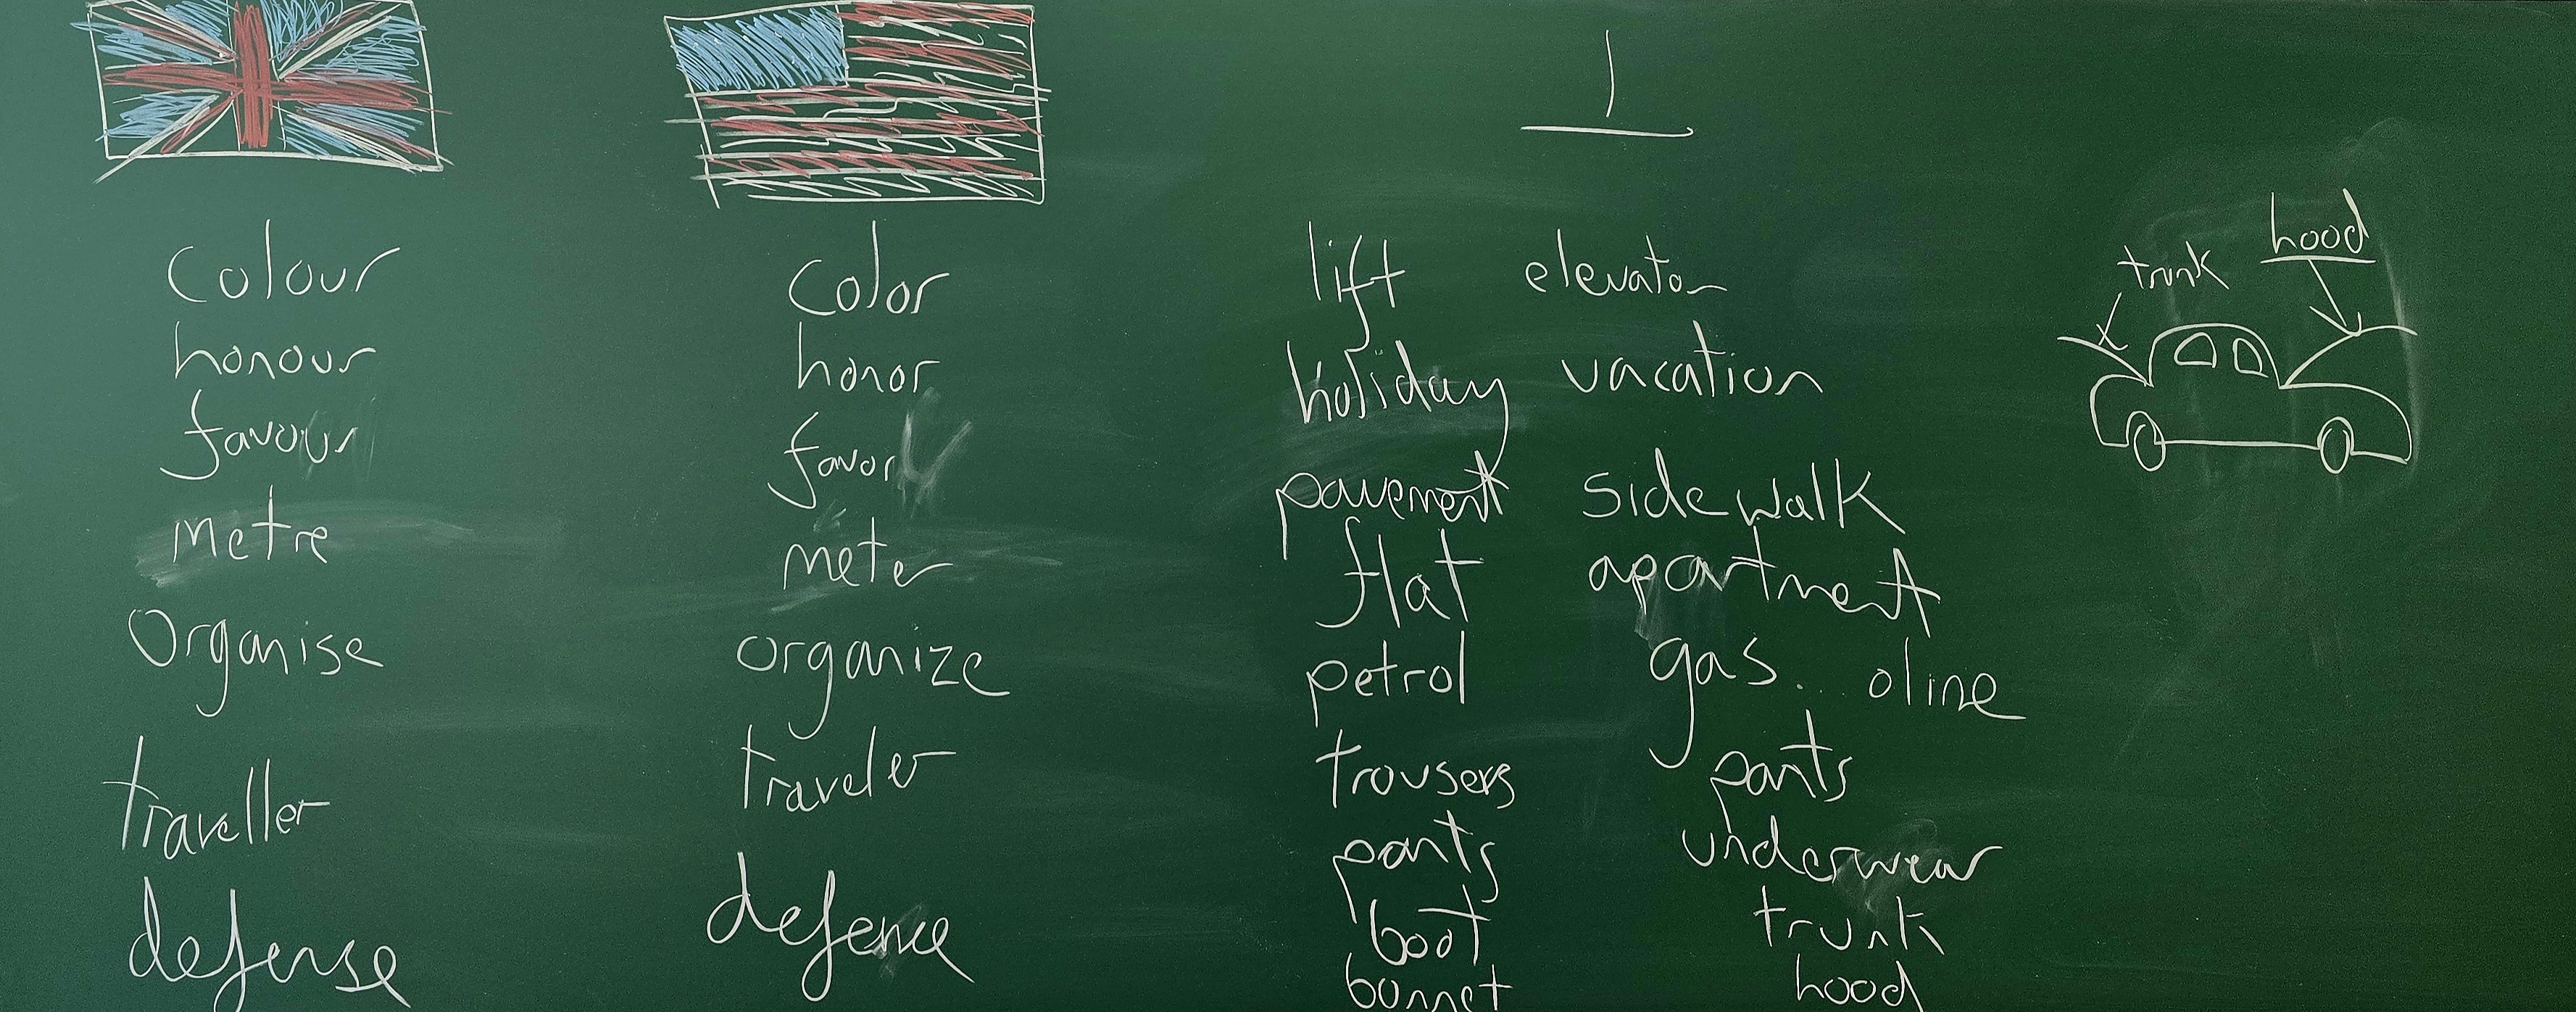 1
colour color
honour honor
favour favor
metre meter
organise organize
traveller traveler
defense defence
lift elevator
holiday vacation
pavement sidewalk
flat apartment
petrol gas... oline
trousers pants
pants underwear
boot trunk
bonnet hood
trunk hood